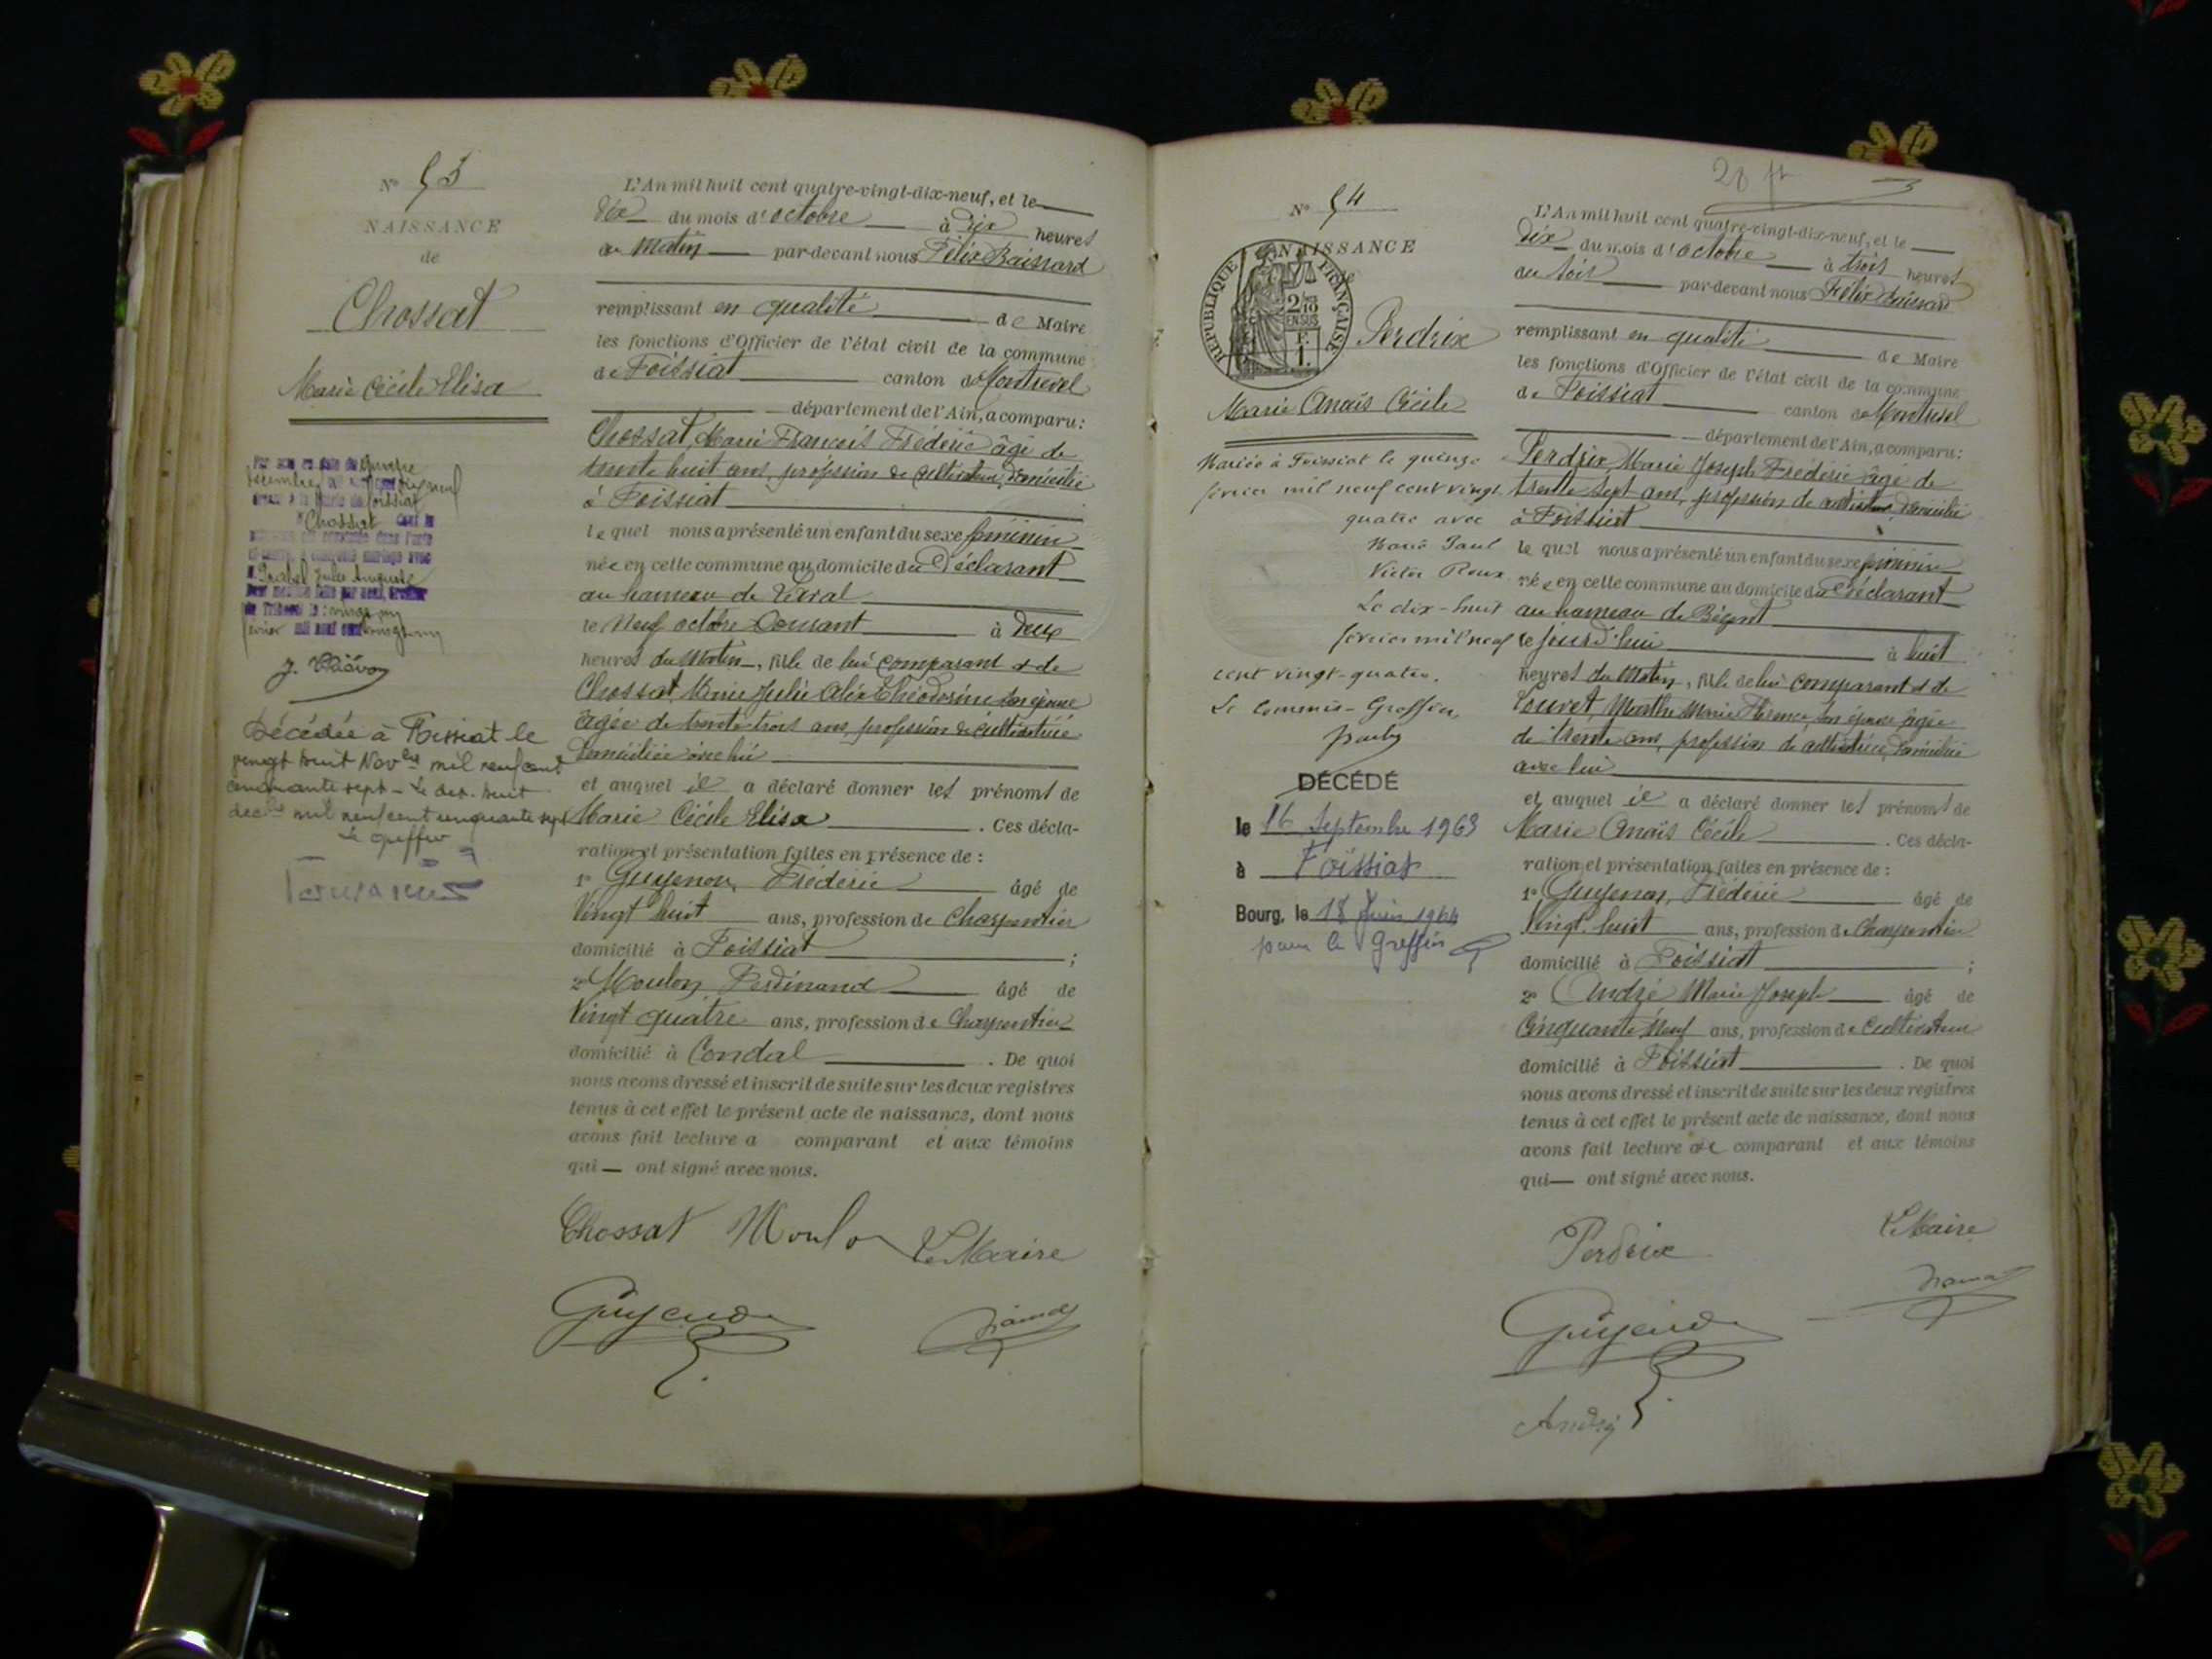 N° 53
NAISSANCE
de
Chossat
Marie Cécile Elisa
décembre mil neuf cent dix neuf
Foissiat
Chossat
mariage avec
Jules Auguste
Décédée à Foissiat le
vingt huit Nov bre mil neuf cent
cinquante sept - Le dix-huit
dec bre mil neuf cent cinquante sept
Le greffier
L'An mil huit cent quatre-vingt-dix-neuf, et le
dix du mois d'octobre à dix heures
du matin par-devant nous Félix Baissard
remplissant en qualité de Maire
les fonctions d'Officier de l'état civil de la commune
de Foissiat canton de Montrevel
département de l'Ain, a comparu :
Chossat, Marie François Frédéric âgé de
trente huit ans, profession de cultivateur, domicilié
à Foissiat
lequel nous a présenté un enfant du sexe féminin
née en cette commune au domicile du Déclarant
au hameau de
le Neuf octobre Courant à deux
heures du Matin, fille de lui comparant & de
Chossat, Marie Julie Alix Théodorine son épouse
âgée de trente trois ans, profession de cultivatrice
domiciliée avec lui
et auquel il a déclaré donner les prénoms de
Marie Cécile Elisa . Ces décla-
ration et présentation faites en présence de :
1° Guyenon, Frédéric âgé de
Vingt huit ans, profession de Charpentier
domicilié à Foissiat ;
2° Moulon Ferdinand âgé de
Vingt quatre ans, profession de Charpentier
domicilié à Condal . De quoi
nous avons dressé et inscrit de suite sur les deux registres
tenus à cet effet le présent acte de naissance, dont nous
avons fait lecture a comparant et aux témoins
qui ont signé avec nous.
Chossat Moulon Le Maire
Guyenon
N° 54
NAISSANCE
de
RÉPUBLIQUE FRANÇAISE
2/10
EN SUS
F.
1.
Perdrix
Marie Anaïs Cécile
Mariée à Foissiat le quinze
février mil neuf cent vingt
quatre avec
Marie Paul
Victor Roux
Le dix-huit
février mil neuf
cent vingt-quatre.
Le Commis-Greffier,
DÉCÉDÉ
le 16 Septembre 1963
à Foissiat
Bourg, le 18 Juin 1964
pour le Greffier
20 ft
L'An mil huit cent quatre-vingt-dix-neuf, et le
dix du mois d'octobre à trois heures
du soir par-devant nous Félix Baissard
remplissant en qualité de Maire
les fonctions d'Officier de l'état civil de la commune
de Foissiat canton de Montrevel
département de l'Ain, a comparu :
Perdrix Marie Joseph Frédéric âgé de
trente sept ans, profession de cultivateur, domicilié
à Foissiat
lequel nous a présenté un enfant du sexe féminin
née en cette commune au domicile du Déclarant
au hameau de
le jourd'hui à huit
heures du Matin, fille de lui comparant & de
Louret, Marthe Marie son épouse âgée
de trente ans, profession de cultivatrice, domiciliée
avec lui
et auquel il a déclaré donner les prénoms de
Marie Anaïs Cécile . Ces décla-
ration et présentation faites en présence de :
1° Guyenon, Frédéric âgé de
Vingt huit ans, profession de Charpentier
domicilié à Foissiat ;
2° André Marie Joseph âgé de
Cinquante Neuf ans, profession de Cultivateur
domicilié à Foissiat . De quoi
nous avons dressé et inscrit de suite sur les deux registres
tenus à cet effet le présent acte de naissance, dont nous
avons fait lecture au comparant et aux témoins
qui ont signé avec nous.
Perdrix Le Maire
Guyenon
André